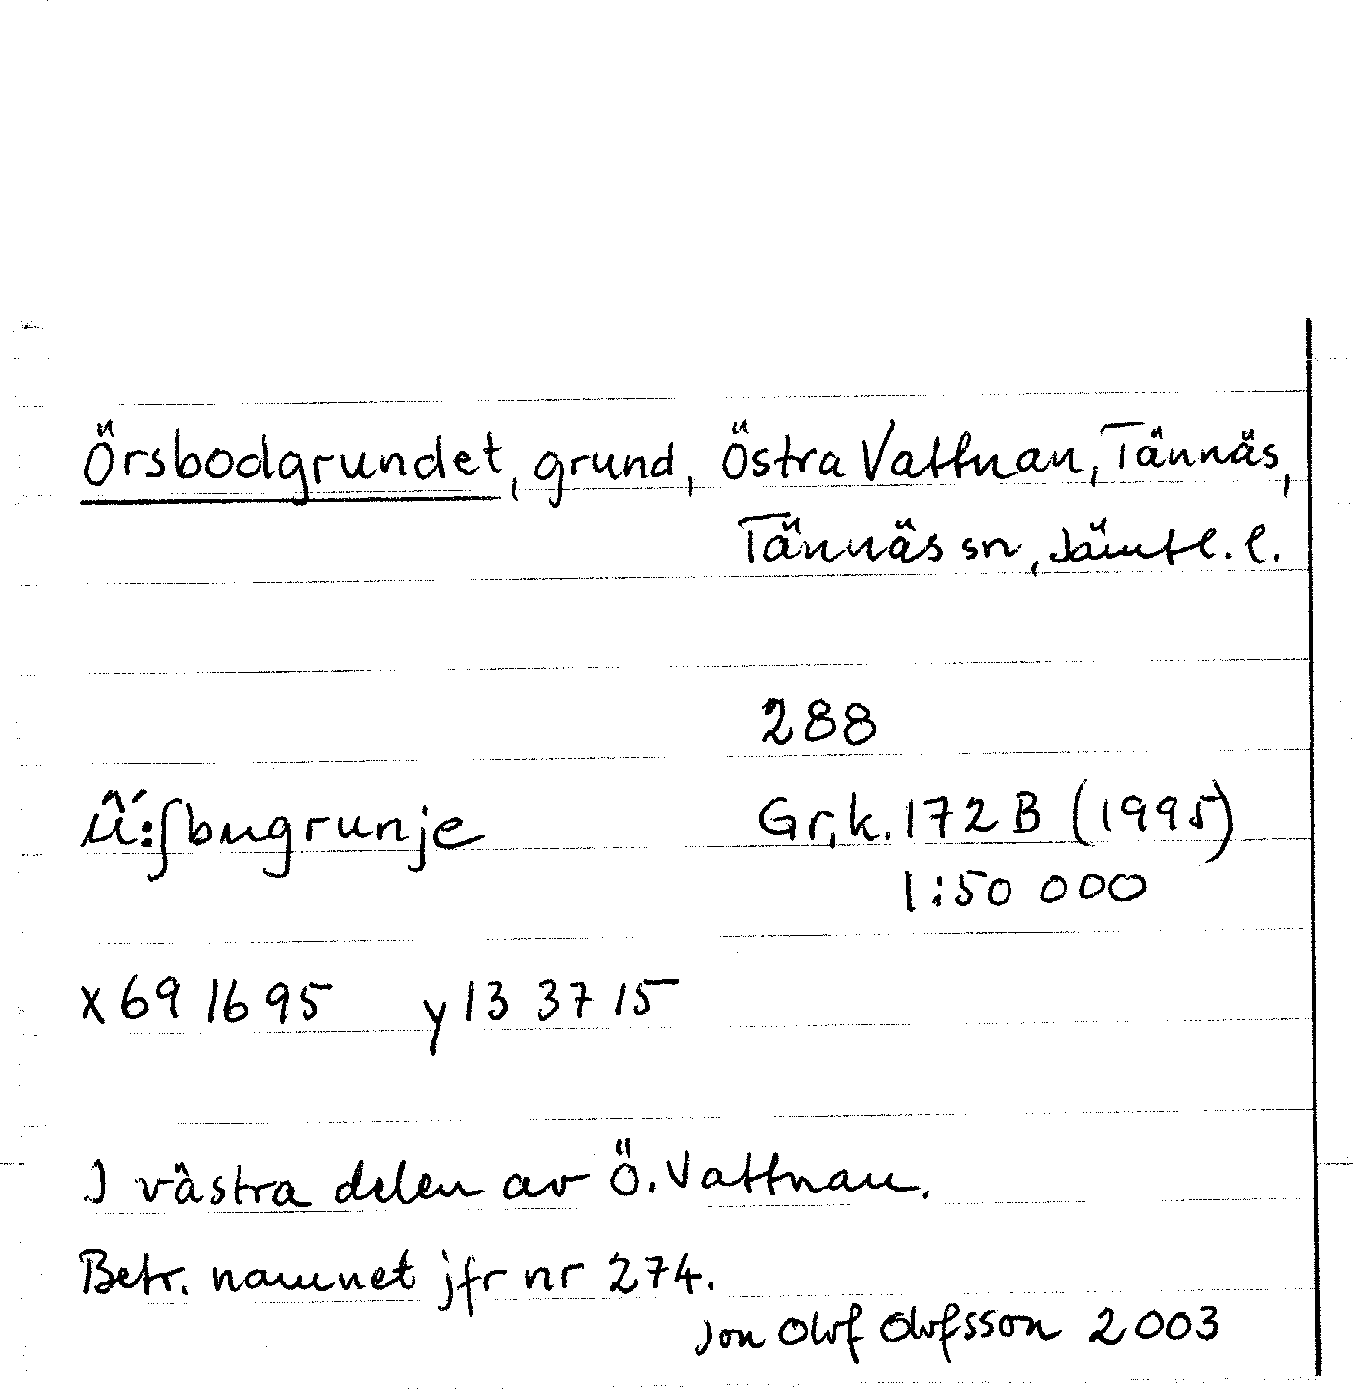 Örsbodgrundet, grund, Östra Vattnan, Tännäs,
Tännäs sn, Jämtl. l.
288
Gr,k. 172 B (1995)
1:50 000
x 69 16 95 y 13 37 15
I västra delen av Ö. Vattnan.
Betr. namnet jfr nr 274.
Jon Olof Olofsson 2003